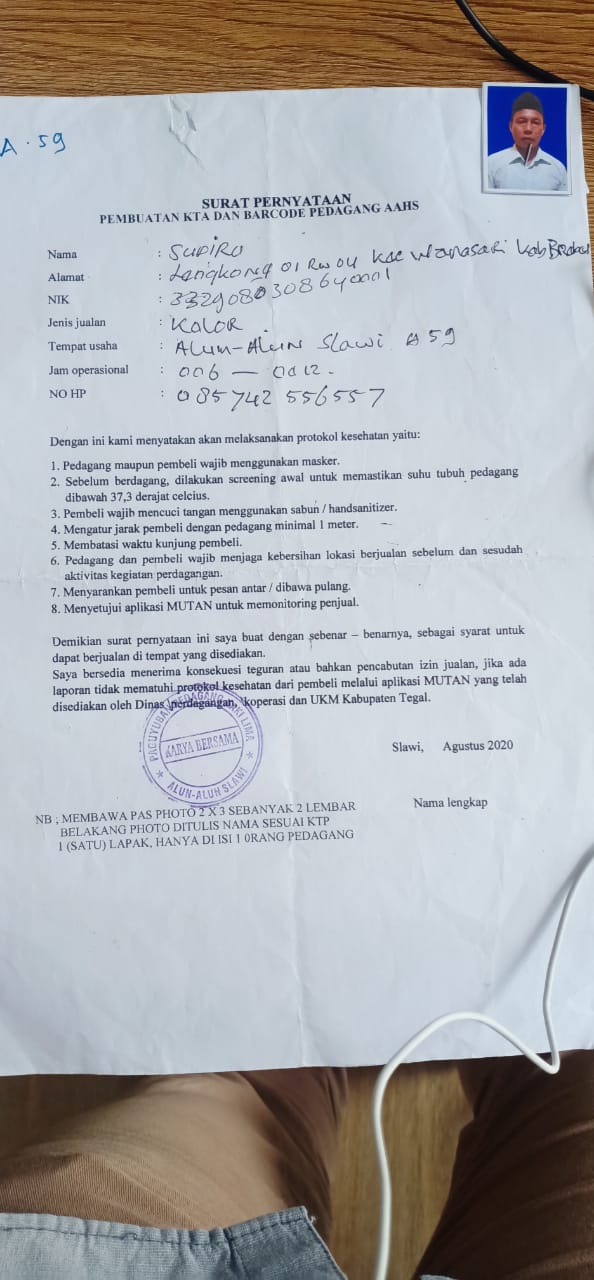 A. 59
SURAT PERNYATAAN
PEMBUATAN KTA DAN BARCODE PEDAGANG AAHS
Nama : SUPIRO
Alamat : Lengkong 01 Rw 04 kec Wanasari Kab Brebes
NIK : 3329080308640001
Jenis jualan : KOLOR.
Tempat usaha : ALUN-ALUN SLAWI A 59
Jam operasional : 006 — 0012.
NO HP : 085742 556557
Dengan ini kami menyatakan akan melaksanakan protokol kesehatan yaitu:
1. Pedagang maupun pembeli wajib menggunakan masker.
2. Sebelum berdagang, dilakukan screening awal untuk memastikan suhu tubuh pedagang
dibawah 37,3 derajat celcius.
3. Pembeli wajib mencuci tangan menggunakan sabun / handsanitizer.
4. Mengatur jarak pembeli dengan pedagang minimal 1 meter.
5. Membatasi waktu kunjung pembeli.
6. Pedagang dan pembeli wajib menjaga kebersihan lokasi berjualan sebelum dan sesudah
aktivitas kegiatan perdagangan.
7. Menyarankan pembeli untuk pesan antar / dibawa pulang.
8. Menyetujui aplikasi MUTAN untuk memonitoring penjual.
Demikian surat pernyataan ini saya buat dengan sebenar – benarnya, sebagai syarat untuk
dapat berjualan di tempat yang disediakan.
Saya bersedia menerima konsekuesi teguran atau bahkan pencabutan izin jualan, jika ada
laporan tidak mematuhi protokol kesehatan dari pembeli melalui aplikasi MUTAN yang telah
disediakan oleh Dinas perdagangan, koperasi dan UKM Kabupaten Tegal.
PAGUYUBAN PEDAGANG KAKI LIMA
KARYA BERSAMA
ALUN-ALUN SLAWI
Slawi, Agustus 2020
Nama lengkap
NB ; MEMBAWA PAS PHOTO 2 X 3 SEBANYAK 2 LEMBAR
BELAKANG PHOTO DITULIS NAMA SESUAI KTP
1 (SATU) LAPAK, HANYA DI ISI 1 0RANG PEDAGANG